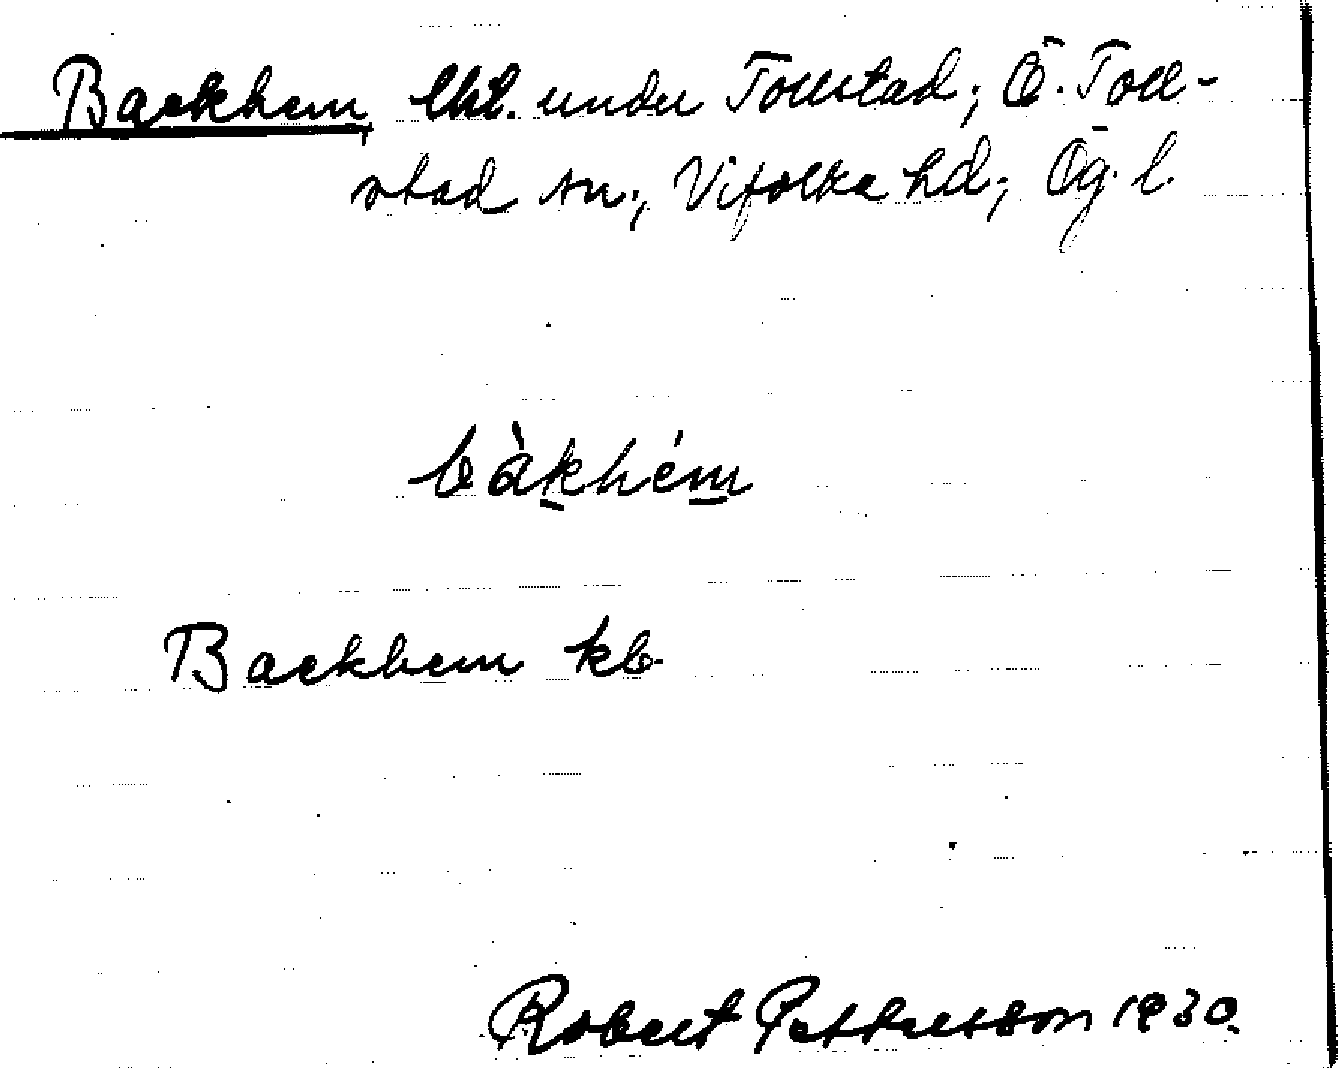 Backhem, lht. under Tollstad; Ö. Toll-
stad sn.; Vifolka hd; Ög. l.
bàkhém
Backhem kb.
Robert Pettersson 1930.